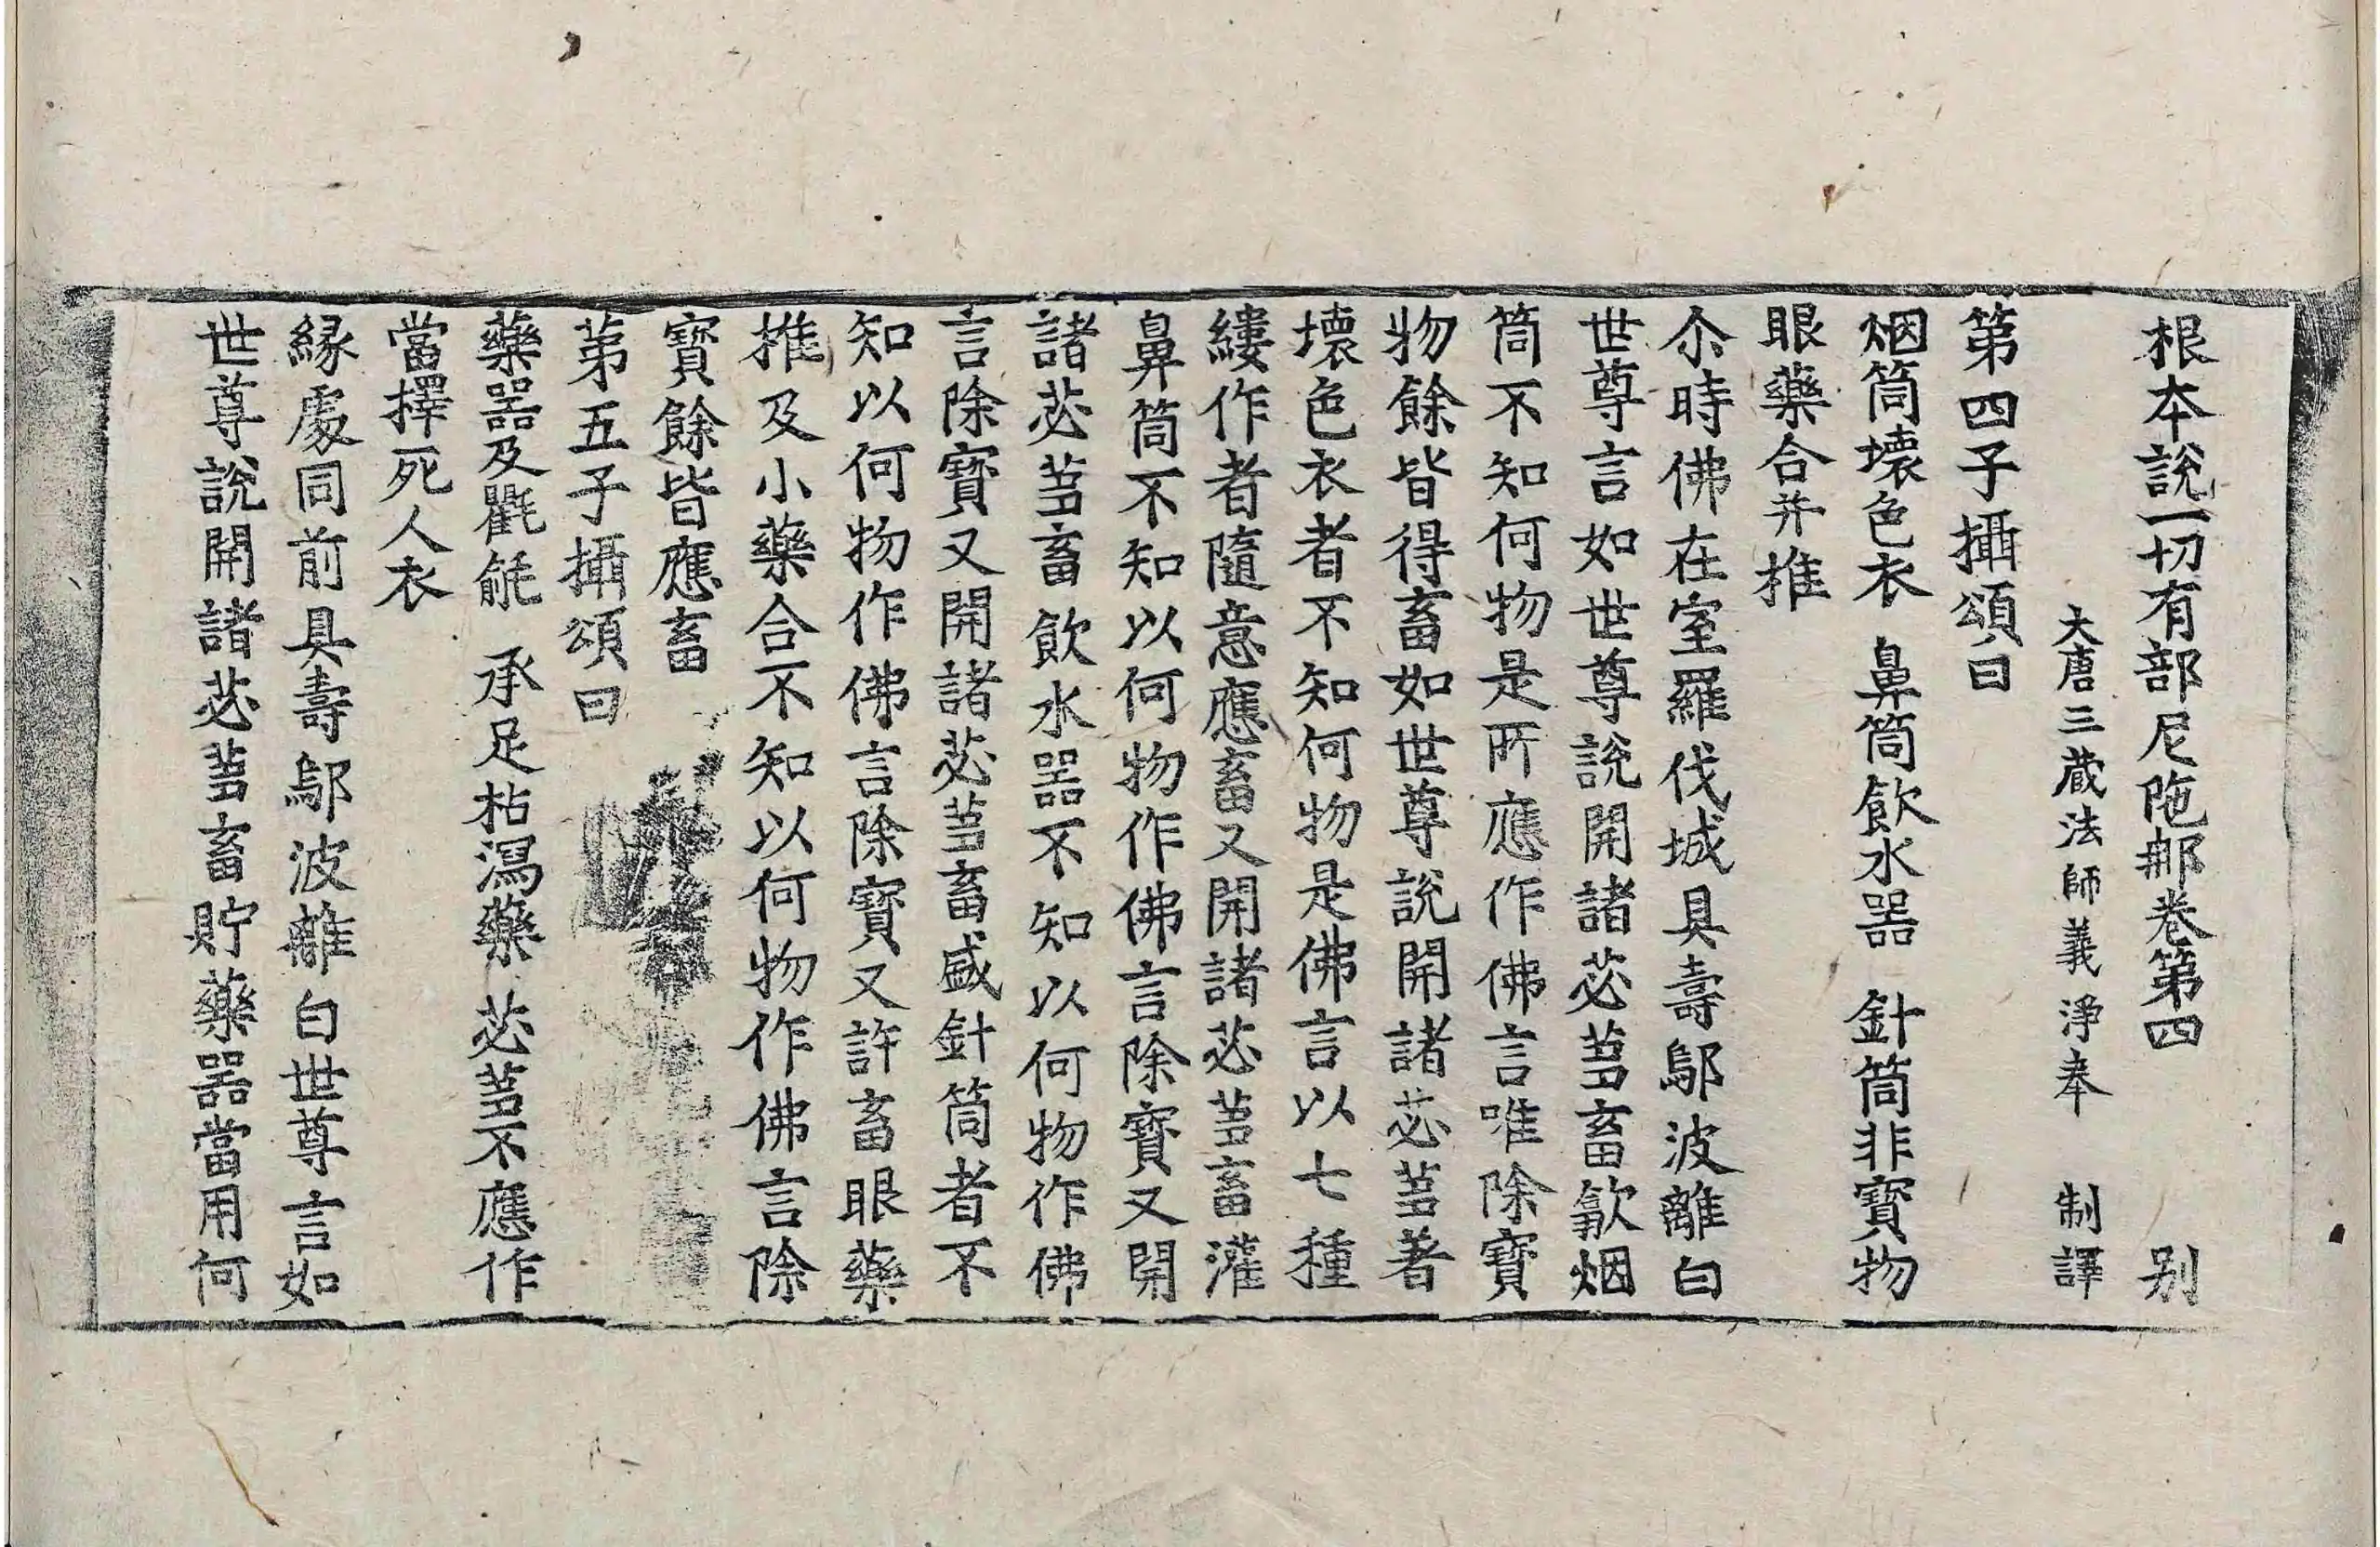 根本說一切有部尼陁那卷第四 別
大唐三蔵法師義淨奉 制譯
第四子攝頌曰
烟筒壊色衣 鼻筒飲水器 針筒非寳物
眼藥合并推
尒時佛在室羅伐城具壽鄔波離白
世尊言如世尊說開諸苾芻畜歙烟
筒不知何物是所應作佛言唯除寳
物餘皆得畜如世尊說開諸苾芻著
壊色衣者不知何物是佛言以七種
縷作者隨意應畜又開諸苾芻畜灌
鼻筒不知以何物作佛言除寳又開
諸苾芻畜飲水器不知以何物作佛
言除寳又開諸苾芻畜盛針筒者不
知以何物作佛言除寳又許畜眼藥
推及小藥合不知以何物作佛言除
寳餘皆應畜
第五子攝頌曰
藥器及氍毹 承足枯瀉藥 苾芻不應作
當擇死人衣
縁處同前具壽鄔波離白世尊言如
世尊說開諸苾芻畜貯藥器當用何